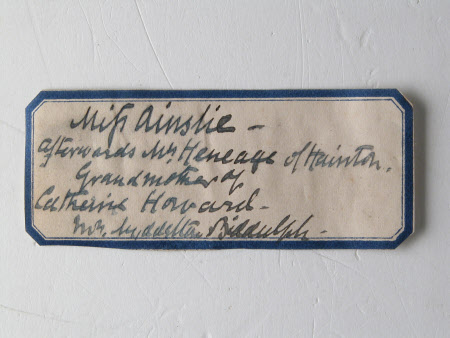 Miss Ainslie -
afterwards Mrs Heneage of Hainton.
Grandmother of
Catherine Howard -
Mrs. Myddelton Biddulph -